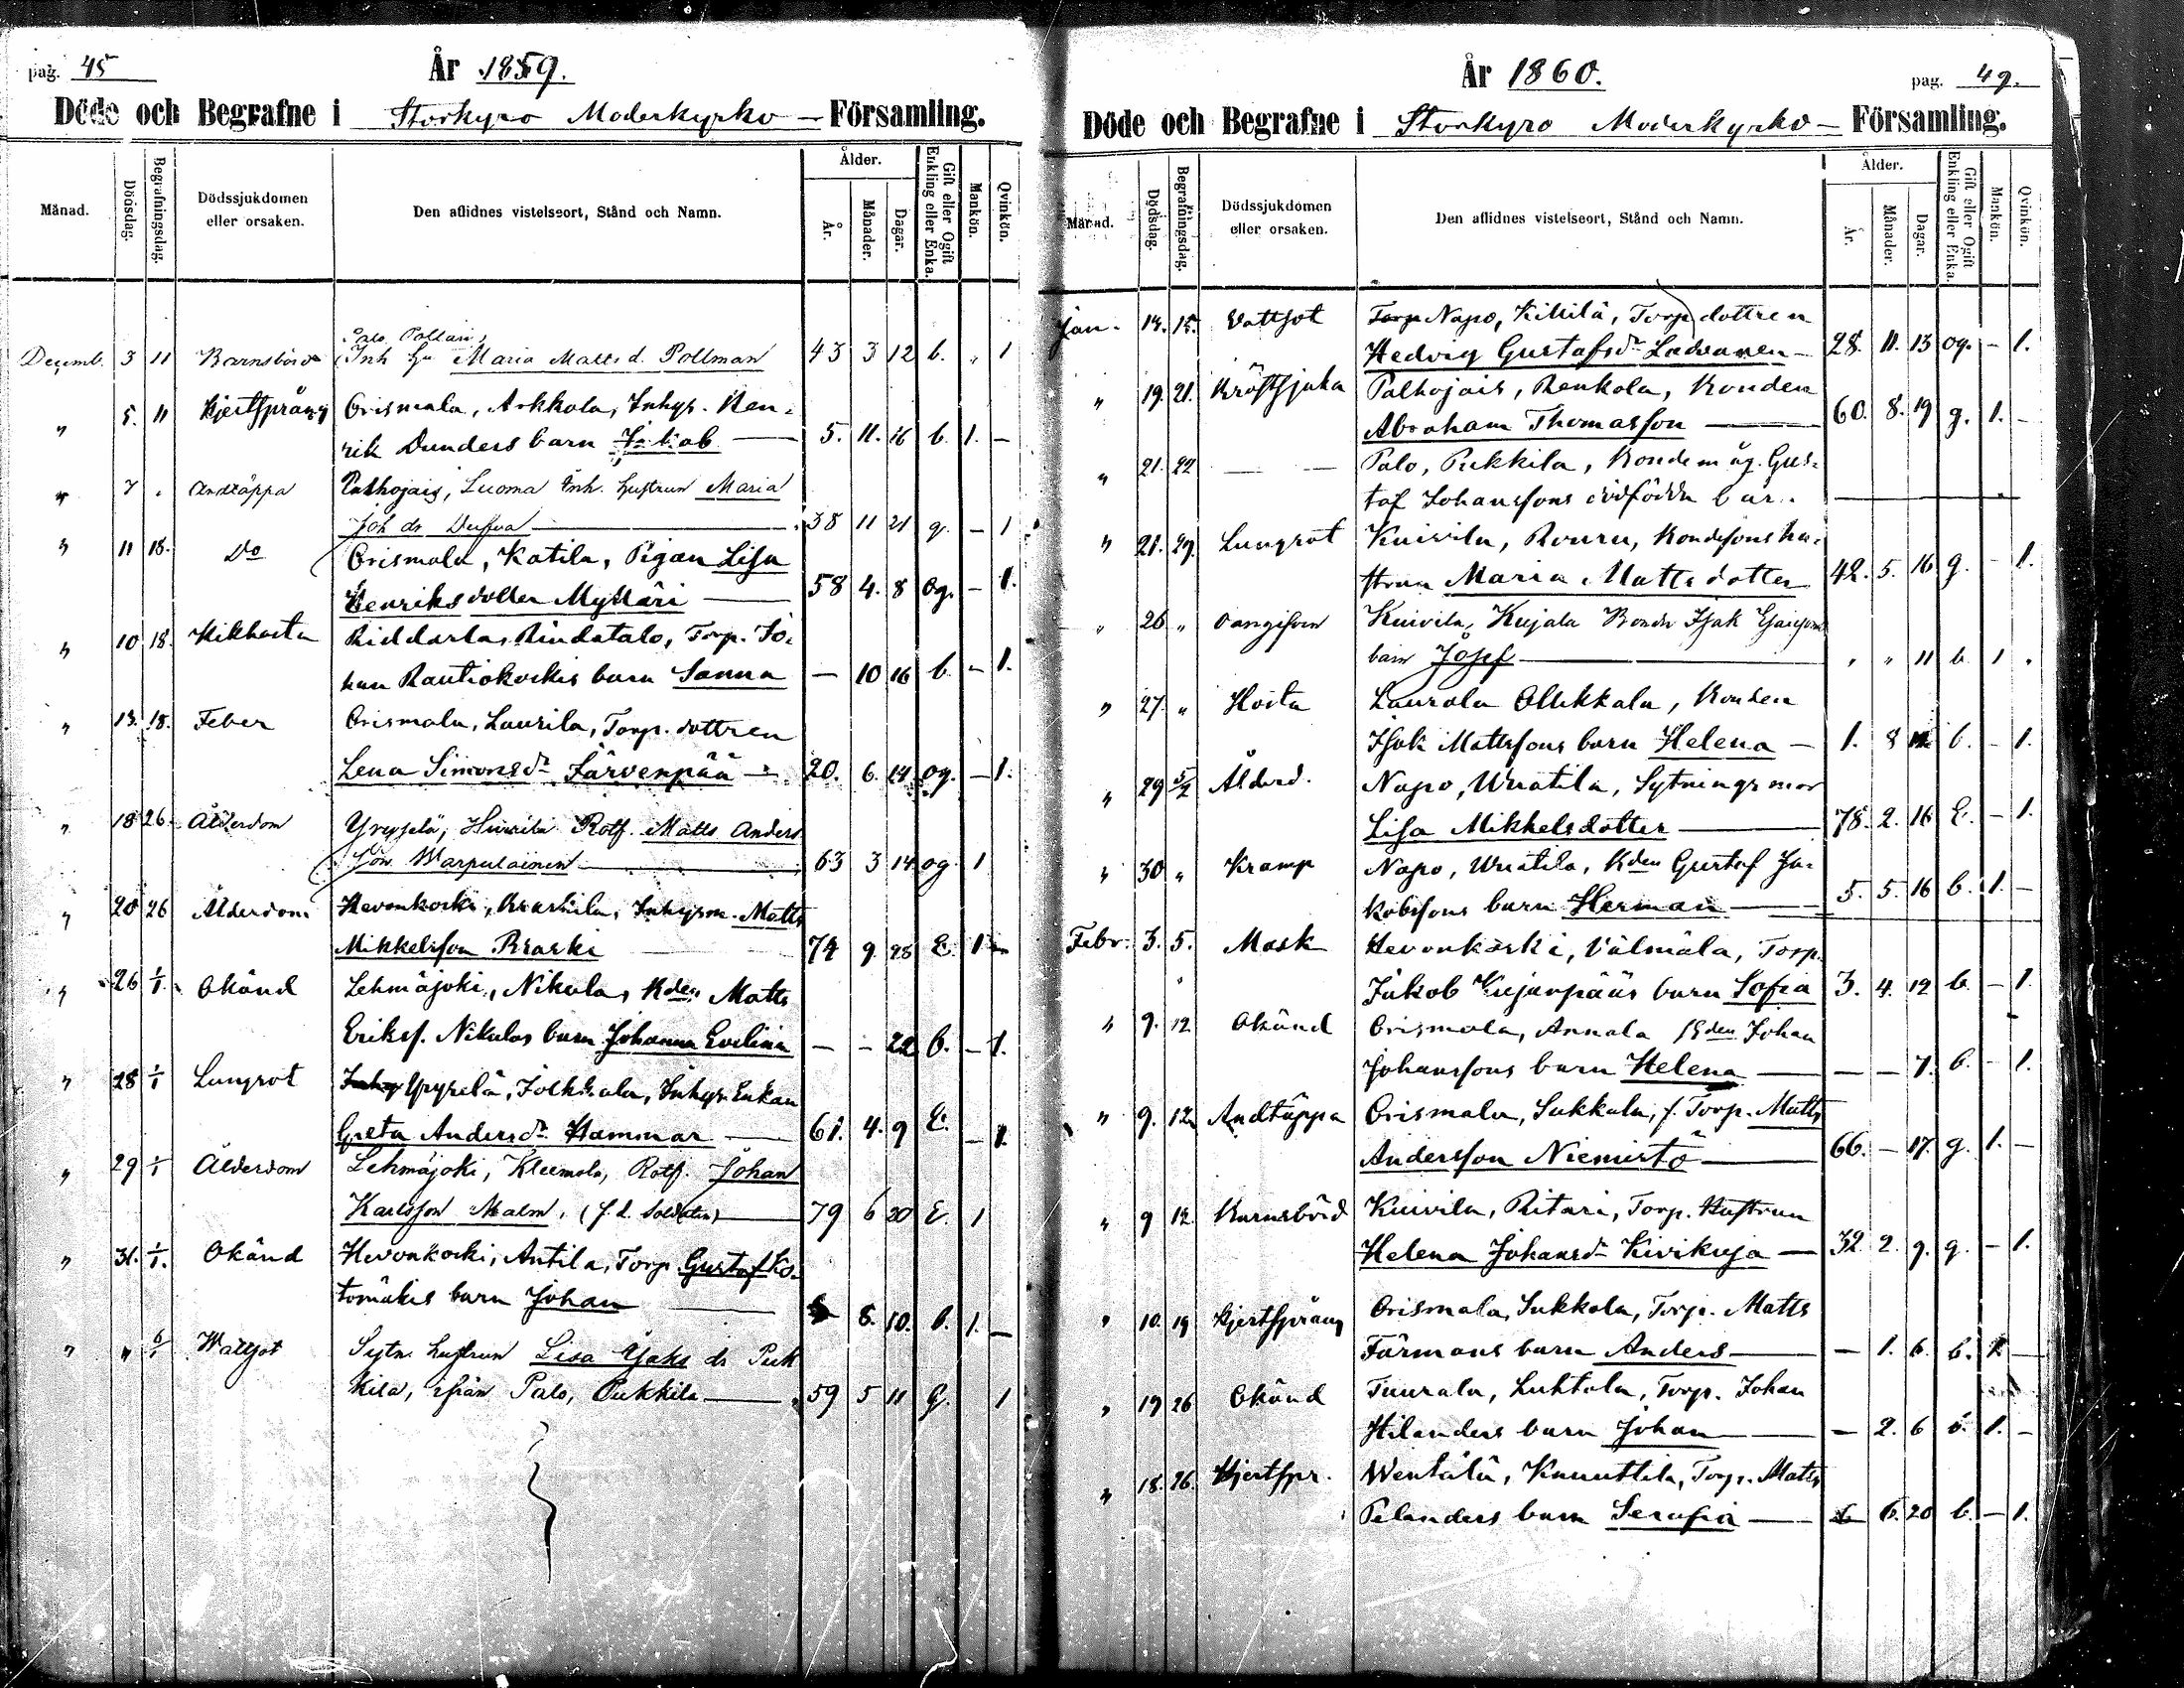 pag. 45
År 1859.
Döde och Begrafne i Storkyro Moderkyrko – Församling.
Månad. Dödsdag. Begrafningsdag. Dödssjukdomen eller orsaken. Den aflidnes vistelseort, Stånd och Namn. Ålder. År. Månader. Dagar. Gift eller Ogift Enkling eller Enka. Mankön. Qvinkön.
Palo
Decemb. 3 11 Barnsbörd Inh hu Maria Matts d. Pollman 43 3 12 1
" 5. 11 Hjertspräng Orismala, Arkkola, Inhys. Hen-
rik Dunders barn Jakob — 5. 11. 16 b. 1. –
" 7 Andtäppa Palhojais, Luoma Inh. hustrun Maria
Joh dr — 38 11 21 g. – 1
" 11 18. Do Orismala, Katila, Pigan Lisa
Henriksdotter Mylläri — 58 4. 8 og. – 1.
" 10 18. Kikhosta Riddarla, Rindatalo, Torp. Jo-
han Rautiokoskis barn Sanna — 10 16 b – 1.
" 13. 18. Feber Orismala, Laurila, Torp. dottren
Lena Simonsdr Järvenpää — 20. 6. 14 og. – 1.
" 18 26 Ålderdom Yryselä, Rotf. Matts Anders
son Warpulainen — 63 3 14 og 1
" 20 26 Ålderdom Hevonkoski, Inhysm. Matts
Mikkelsson 74 9. 28 E. 1 –
" 26 1/1. Okänd Lehmäjoki, Nikula, Bden Matts
Eriksf. Nikulas barn Johanna Evelina — – 22 b. – 1.
" 28 1/1 Lungsot Inhy Yryselä, Jockkala, Inhys. Enkan
Greta Andersdr Hammar — 61. 4. 9 E. – 1.
" 29 1/1 Ålderdom Lehmäjoki, Kleemola, Rotf. Johan
Karlsson Malm. (f.d. Soldaten) — 79 6 20 E. 1
" 31. 1/1. Okänd Hevonkoski, Antila, Torp. Gustaf Ko-
tomäkis barn Johan — 8. 10. b. 1. –
" " 6/1 Wattsot Sytn. hustrun Lisa Isaks dr Puk
kila, ifrån Palo, Pukkila — 59 5 11 G. 1
År 1860.
pag. 49.
Döde och Begrafne i Storkyro Moderkyrko – Församling.
Månad. Dödsdag. Begrafningsdag. Dödssjukdomen eller orsaken. Den aflidnes vistelseort, Stånd och Namn. Ålder. År. Månader. Dagar. Gift eller Ogift Enkling eller Enka. Mankön. Qvinkön.
Jan. 14. 15. Vattsot Torp Napo, Kihilä, Torp dottren
Hedvig Gustafsdr — 28. 11. 13 og. – 1.
" 19 21. Kräftsjuka Palhojais, Renkola, Bonden
Abraham Thomasson — 60. 8. 19 g. 1. –
" 21. 22 — — Palo, Pukkila, Bondemåg. Gus-
taf Johanssons dödfödda barn —
" 21. 29. Lungsot Kuivila, Rouru, Bondesons hu-
strun Maria Mattsdotter 42. 5. 16 g. – 1.
" 26 " Kuivila, Kujala Bonden Isak
barn Josef — " " 11 b 1 "
" 27. " Hosta Laurola Ollikkala, Bonden
Isak Mattssons barn Helena – 1. 8 b. – 1.
" 29 5/2 Ålderd. Napo, Wuatila, Sytningsmor
Lisa Mikkelsdotter — 78. 2. 16 E. – 1.
" 30 " Kramp Napo, Wuatila, Bden Gustaf Ja-
kobssons barn Herman — 5. 5. 16 b. 1. –
Febr. 3. 5. Mask Hevonkoski, Välmälä, Torp.
Jakob Kujanpääs barn Sofia 3. 4. 12 b. – 1.
" 9. 12 Okänd Orismala, Annala Bden Johan
Johanssons barn Helena — — – 7. b. – 1.
" 9. 12 Andtäppa Orismala, Sukkala, f. Torp. Matts
Andersson Niemistö — 66. – 17. g. 1. –
" 9 12 Barnsbörd Kuivila, Ritari, Torp. Hustrun
Helena Johansdr Kivikuja — 32. 2. 9. g. – 1.
" 10. 19 Hjertspräng Orismala, Sukkola, Torp. Matts
Färmans barn Anders — – 1. 6. b. 1. –
" 19 26 Okänd Tuurala, Luhtala, Torp. Johan
Hilanders barn Johan — – 2. 6 b. 1. –
" 18. 26. Hjertspr. Wentälä, Knuuttila, Torp. Matts
Pelanders barn Serafia — 6. 20 b. – 1.